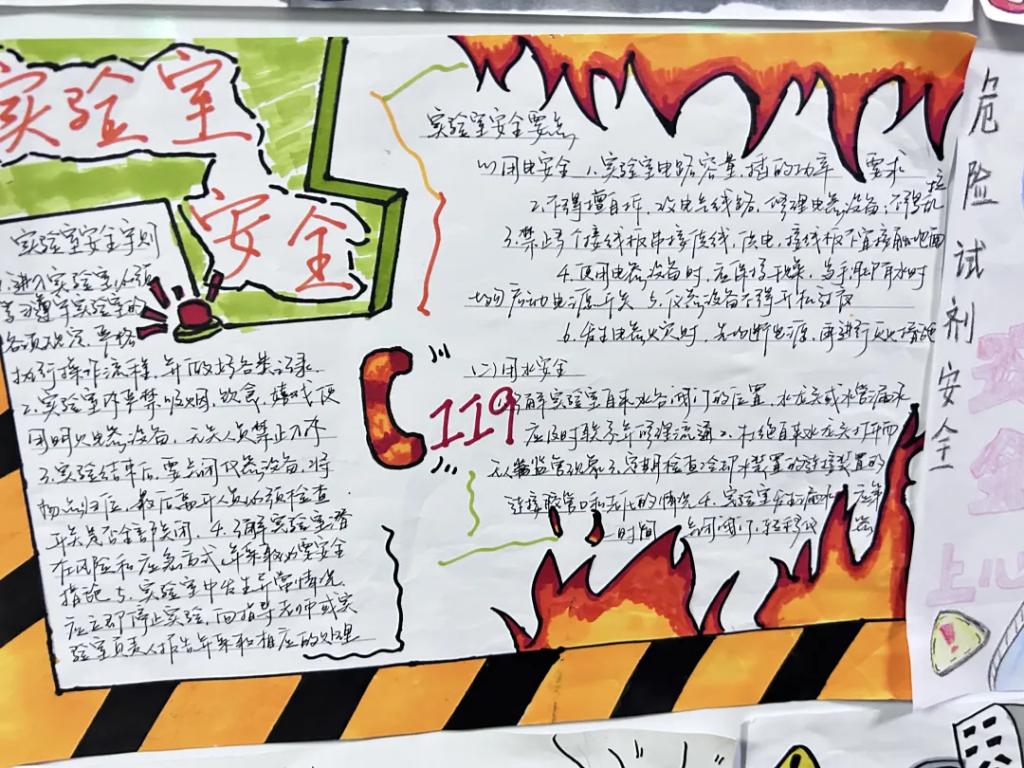 实验室
安全
实验室安全守则
1.进入实验室必须
遵守实验室的
各项规定,严格
执行操作流程,并做好各类记录.
2.实验室内严禁吸烟,饮食,嬉戏使
用明火电器设备,无关人员禁止入内
3.实验结束后,要关闭仪器设备,将
物品归位,最后离开人员必须检查
开关是否全部关闭.4.了解实验室潜
在风险和应急方式,并采取必要安全
措施5.实验室中发生异常情况
应立即停止实验,向指导老师或实
验室负责人报告并采取相应的处理
实验室安全要点
(1)用电安全 1.实验室电路容量,插的功率 要求
2.不得擅自拆,改电气线路,修理电器设备;不得乱拉
3.禁止多个接线板串接连线,供电,接线板不宜接触地面
4.使用电器设备时,应保持干燥,当手潮湿有水时
启动电源开关 5.仪器设备不得开机过夜
6.发生电器火灾时,先切断电源,再进行灭火措施
(2)用水安全
119
了解实验室自来水各阀门的位置,水龙头或水管漏水
应及时联系并修理疏通 2.杜绝自来水龙头打开而
无人监管现象 3.定期检查冷却水装置的连接装置的
连接胶管口和老化的情况 4.实验室发生漏水 应第
一时间 关闭阀门,转移仪器
危险试剂安全
上心